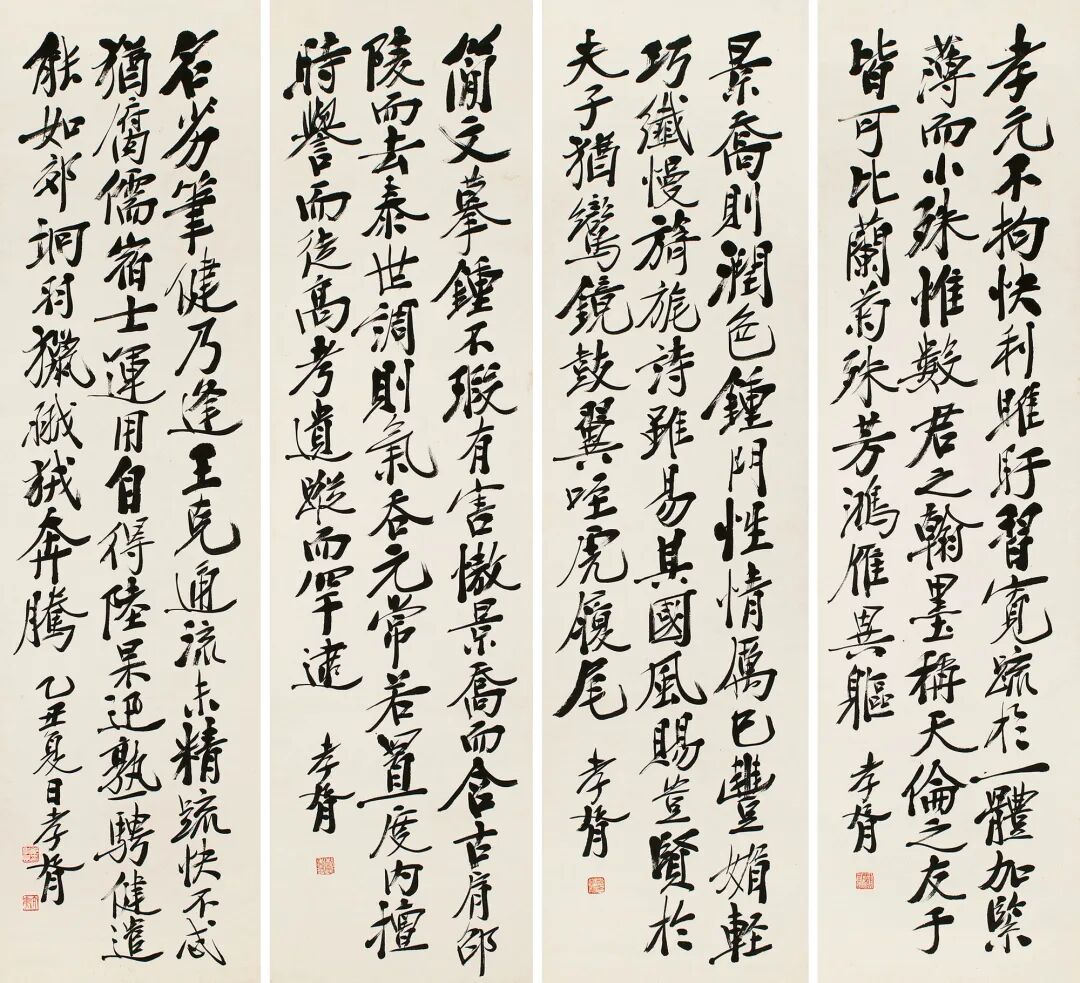 孝元不拘快利睢盱習寬疏於一體加緊
薄而小殊惟數君之翰墨稱天倫之友于
皆可比蘭菊殊芳鴻雁異軀 孝胥
景喬則潤色鍾門性情厲已豐媚輕
巧纖慢旖旎詩雖易其國風賜豈賢於
夫子猶鸞鏡鼓翼咥虎履尾 孝胥
簡文摹鍾不瑕有害慠景喬而含古肩邵
陵而去泰世調則氣吞元常若置度內擅
時譽而徒高考遺蹤而罕逮 孝胥
名劣筆健乃逢王克通流未精疏快不忒
猶腐儒宿士運用自得陸杲迅熟騁健遣
能如郊坰羽獵狨奔騰 乙丑夏日孝胥